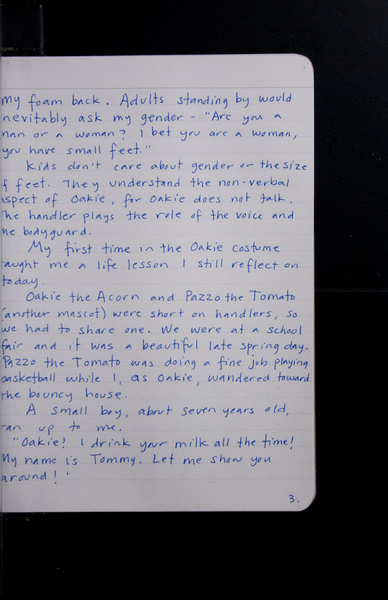 my foam back. Adults standing by would
nevitably ask my gender - "Are you a
man or a woman? I bet you are a woman,
you have small feet."
Kids don't care about gender or the size
f feet. They understand the non-verbal
aspect of Oakie, for Oakie does not talk.
The handler plays the role of the voice and
he bodyguard.
My first time in the Oakie costume
taught me a life lesson I still reflect on
today.
Oakie the Acorn and Pazzo the Tomato
(another mascot) were short on handlers, so
we had to share one. We were at a school
fair and it was a beautiful late spring day.
Pazzo the Tomato was doing a fine job playing
basketball while I, as Oakie, wandered toward
the bouncy house.
A small boy, about seven years old,
ran up to me.
"Oakie! I drink your milk all the time!
My name is Tommy. Let me show you
around!"
3.